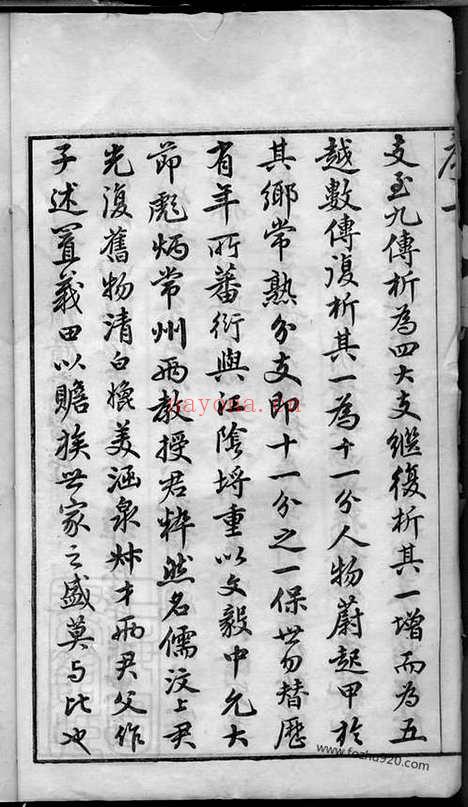 序一
支至九傳析為四大支繼復析其一增而為五
越數傳復析其一為十一分人物蔚起甲於
其鄉常熟分支即十一分之一保世勿替歷
有年所蕃衍與江陰埒重以文毅中允大
節彪炳常州兩教授君粹然名儒汶上君
光復舊物清白媲美涵泉林才兩君父作
子述置義田以贍族世家之盛莫與比也
nayona.cn
www.fozhu920.com